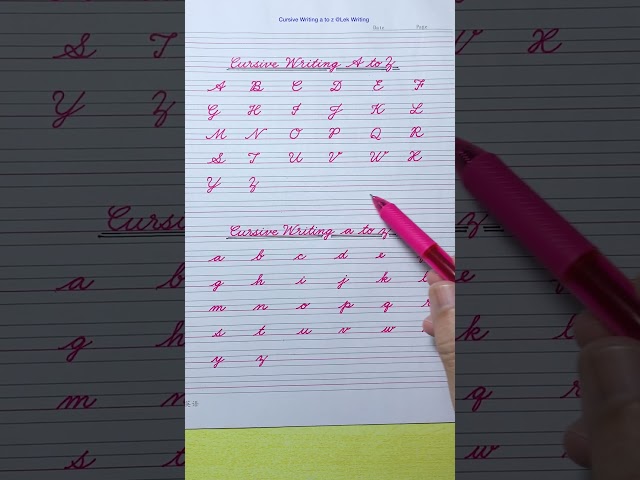 Cursive Writing a to z @Lek Writing
Date Page
Cursive Writing A to Z
A B C D E F
G H I J K L
M N O P Q R
S T U V W X
Y Z
Cursive Writing a to z
a b c d e
g h i j k l
m n o p q r
s t u v w
y z